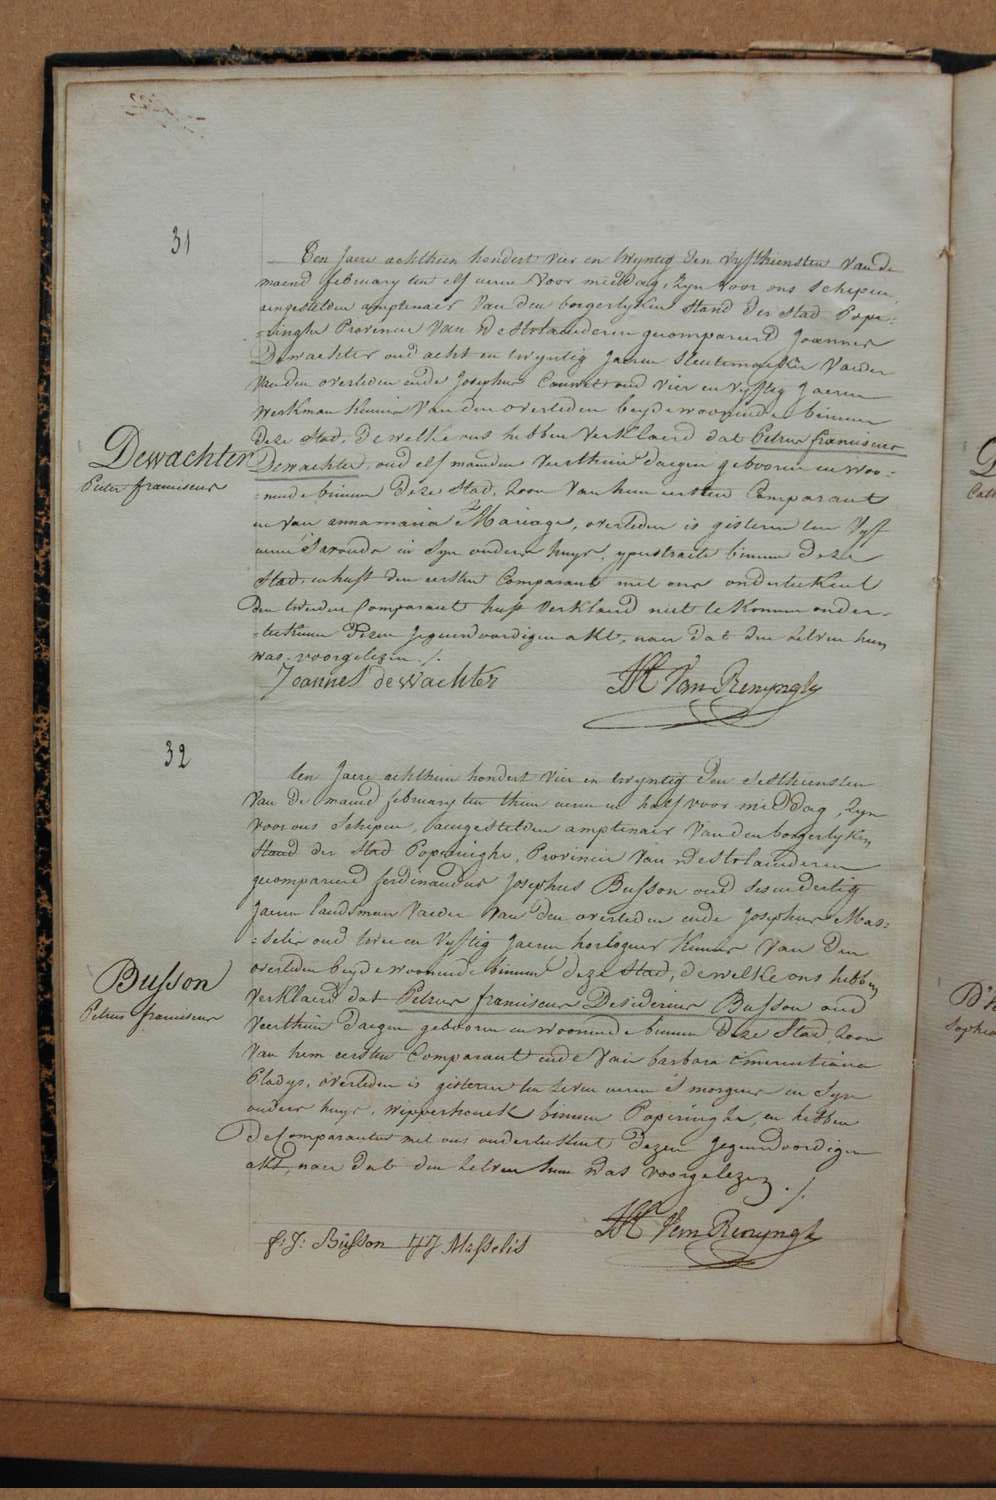 31
Een Jaere achthien hondert vier en twyntig den vyfthiensten van de
maend february ten elf uren voor middag, zyn voor ons schepen,
aengestelden amptenaer van den borgerlyken stand der stad Pope=
=ringhe Provincie van Westvlaenderen gecompareerd Joannes
Dewachter oud acht en twyntig Jaeren sleutemaeker vaeder
van den overleden ende Josephus Cauwet oud vier en vyftig Jaeren
werkman kennis van den overleden beyde woonende binnen
deze stad, dewelke ons hebben verklaerd dat Petrus franciscus
Dewachter
Peter franciscus
Dewachter, oud elf maenden veerthien daegen gebooren en woo=
=nende binnen deze stad, zoon van hem eersten Comparant
en van annamaria Mariage, overleden is gisteren ten vyf
uren s'avonds in syn ouders huys, yperstraete binnen deze
stad, en heeft den eersten Comparant met ons onderteekent
den tweeden Comparant heeft verklaerd niet te konnen onder=
=teekenen dezen jegenwoordigen akt, naer dat den zelven hun
was voorgelezen ./.
Joannes dewachter Van Renynghe
32
ten Jaere achthien hondert vier en twyntig den sesthiensten
van de maend february ten thien uren en half voor middag, zyn
voor ons schepen, aengestelden amptenaer van den borgerlyken
stand der stad Poperinghe, Provincie van Westvlaenderen
gecompareerd ferdinandus Josephus Busson oud ses en dertig
Jaeren landsman vaeder van den overleden ende Josephus Mas=
=selis oud twee en vyftig Jaeren horlogeur kennis van den
overleden beyde woonende binnen deze stad, dewelke ons hebben
Busson
Petrus franciscus
verklaerd dat Petrus franciscus Desiderius Busson oud
veerthien daegen gebooren en woonende binnen deze stad, zoon
van hem eersten Comparant ende van barbara Emerentiana
Pladys, overleden is gisteren ten zeven uren s'morgens in syn
ouders huys, wipperhoek binnen Poperinghe, en hebben
de Comparanten met ons onderteekent dezen jegenwoordigen
akt, naer dat den zelven hun was voorgelezen ./.
f: J: Busson J J Masselis Van Renynghe